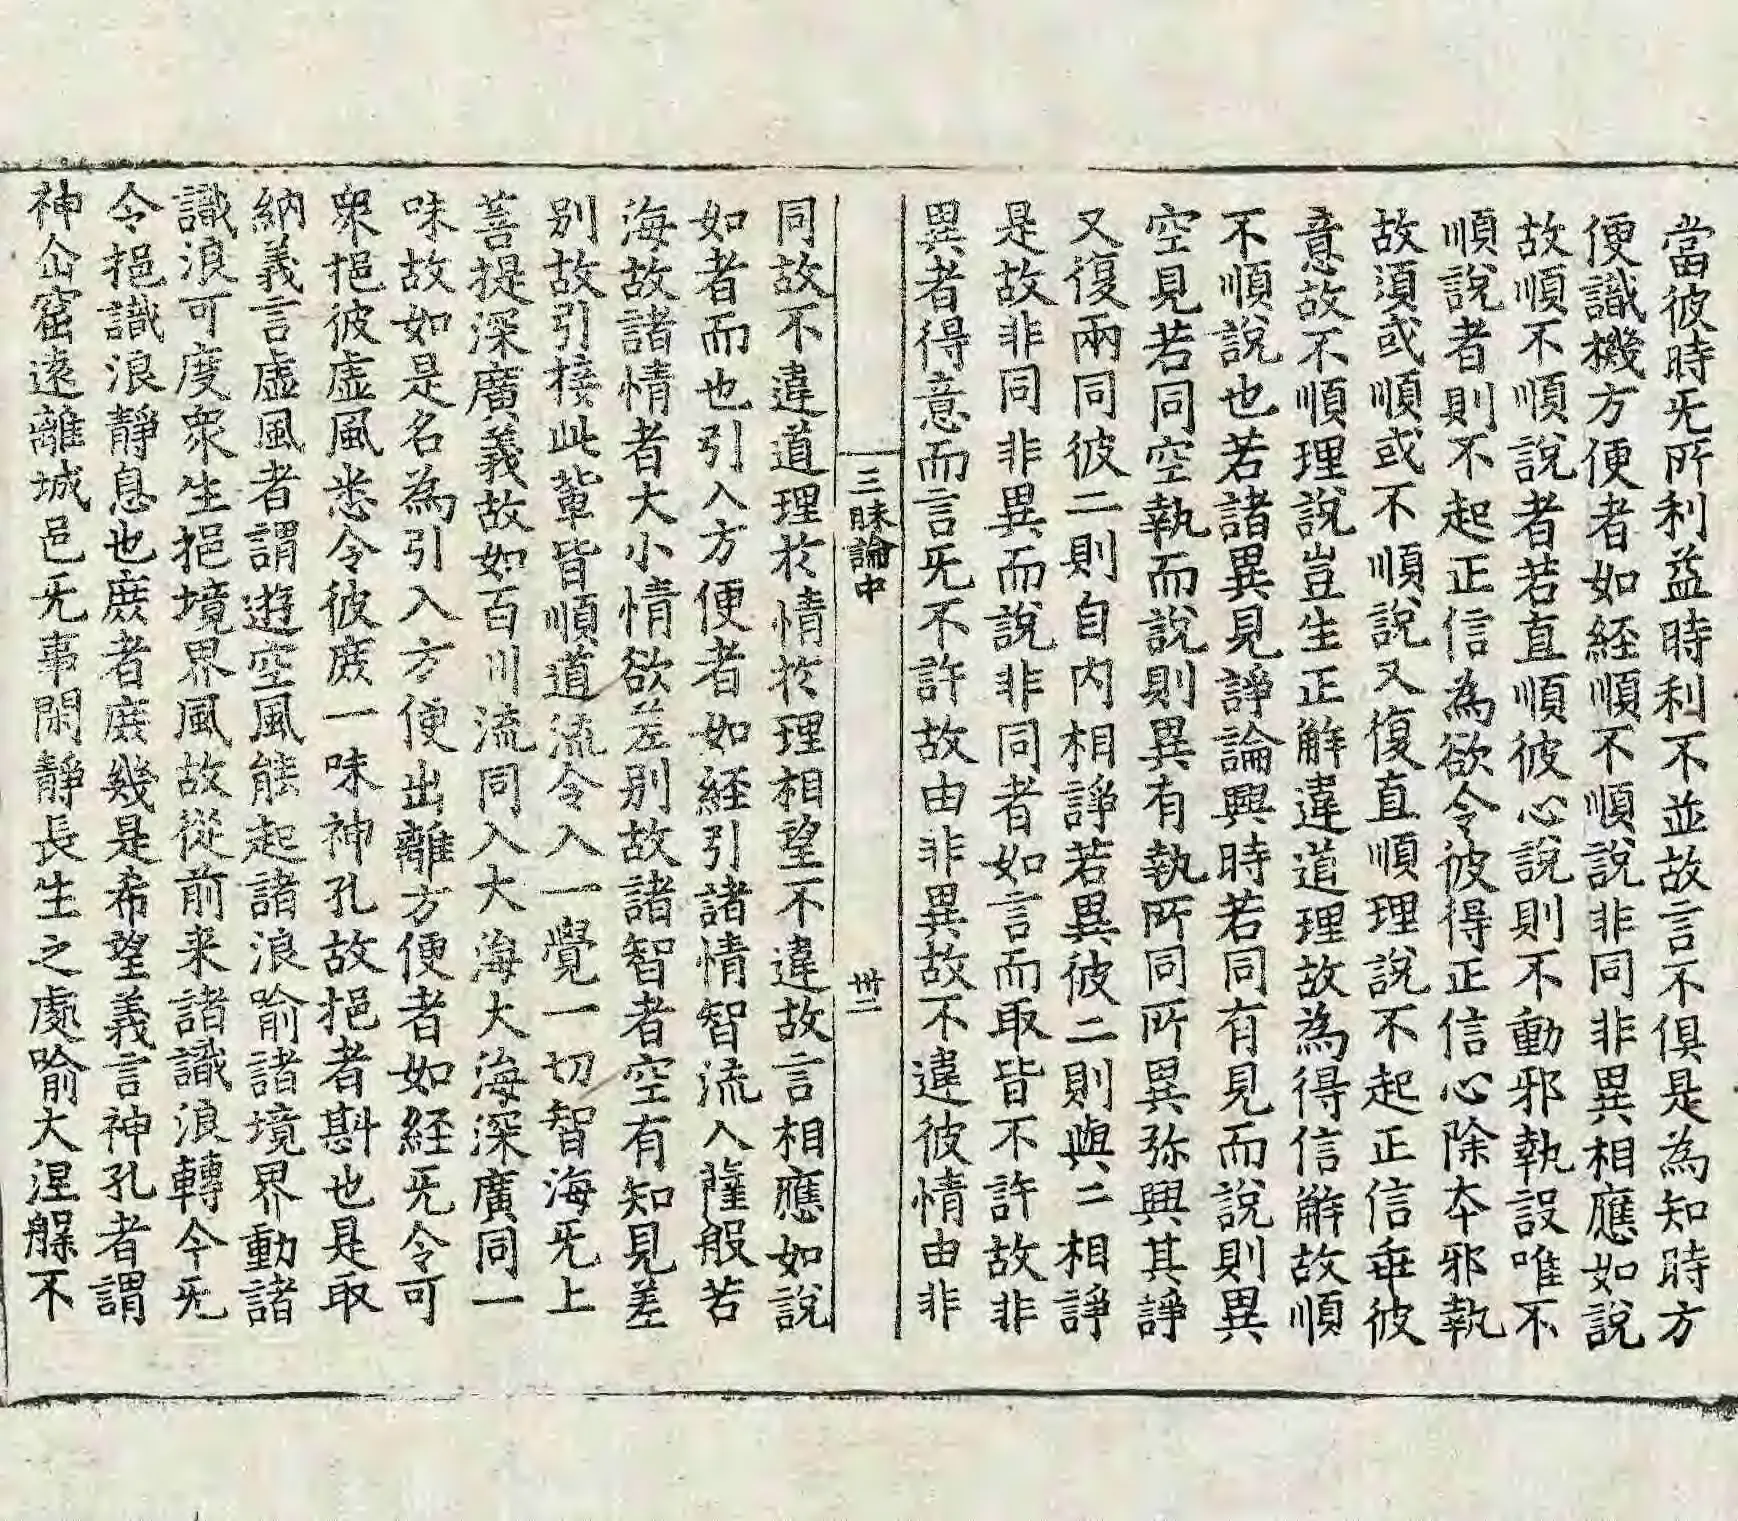 當彼時旡所利益時利不並故言不俱是為知時方
便識機方便者如経順不順說非同非異相應如說
故順不順說者若直順彼心說則不動邪執設唯不
順說者則不起正信為欲令彼得正信心除夲邪執
故須或順或不順說又復直順理說不起正信乖彼
意故不順理說豈生正解違道理故為得信解故順
不順說也若諸異見諍論興時若同有見而說則異
空見若同空執而說則異有執所同所異弥興其諍
又復兩同彼二則自内相諍若異彼二則與二相諍
是故非同非異而說非同者如言而取皆不許故非
異者得意而言旡不許故由非異故不違彼情由非
三昧論中 卌二
同故不違道理扵情扵理相望不違故言相應如說
如者而也引入方便者如経引諸情智流入薩般若
海故諸情者大小情欲差别故諸智者空有知見差
别故引接此輩皆順道流令入一覺一切智海旡上
菩提深廣義故如百川流同入大海大海深廣同一
味故如是名為引入方便出離方便者如経旡令可
衆挹彼虛風悉令彼庻一味神孔故挹者斟也是取
納義言虛風者謂遊空風能起諸浪喻諸境界動諸
識浪可度衆生挹境界風故從前来諸識浪轉今旡
令挹識浪靜息也庻者庻幾是希望義言神孔者謂
神仚窟遠離城邑旡事閑靜長生之處喻大涅槃不